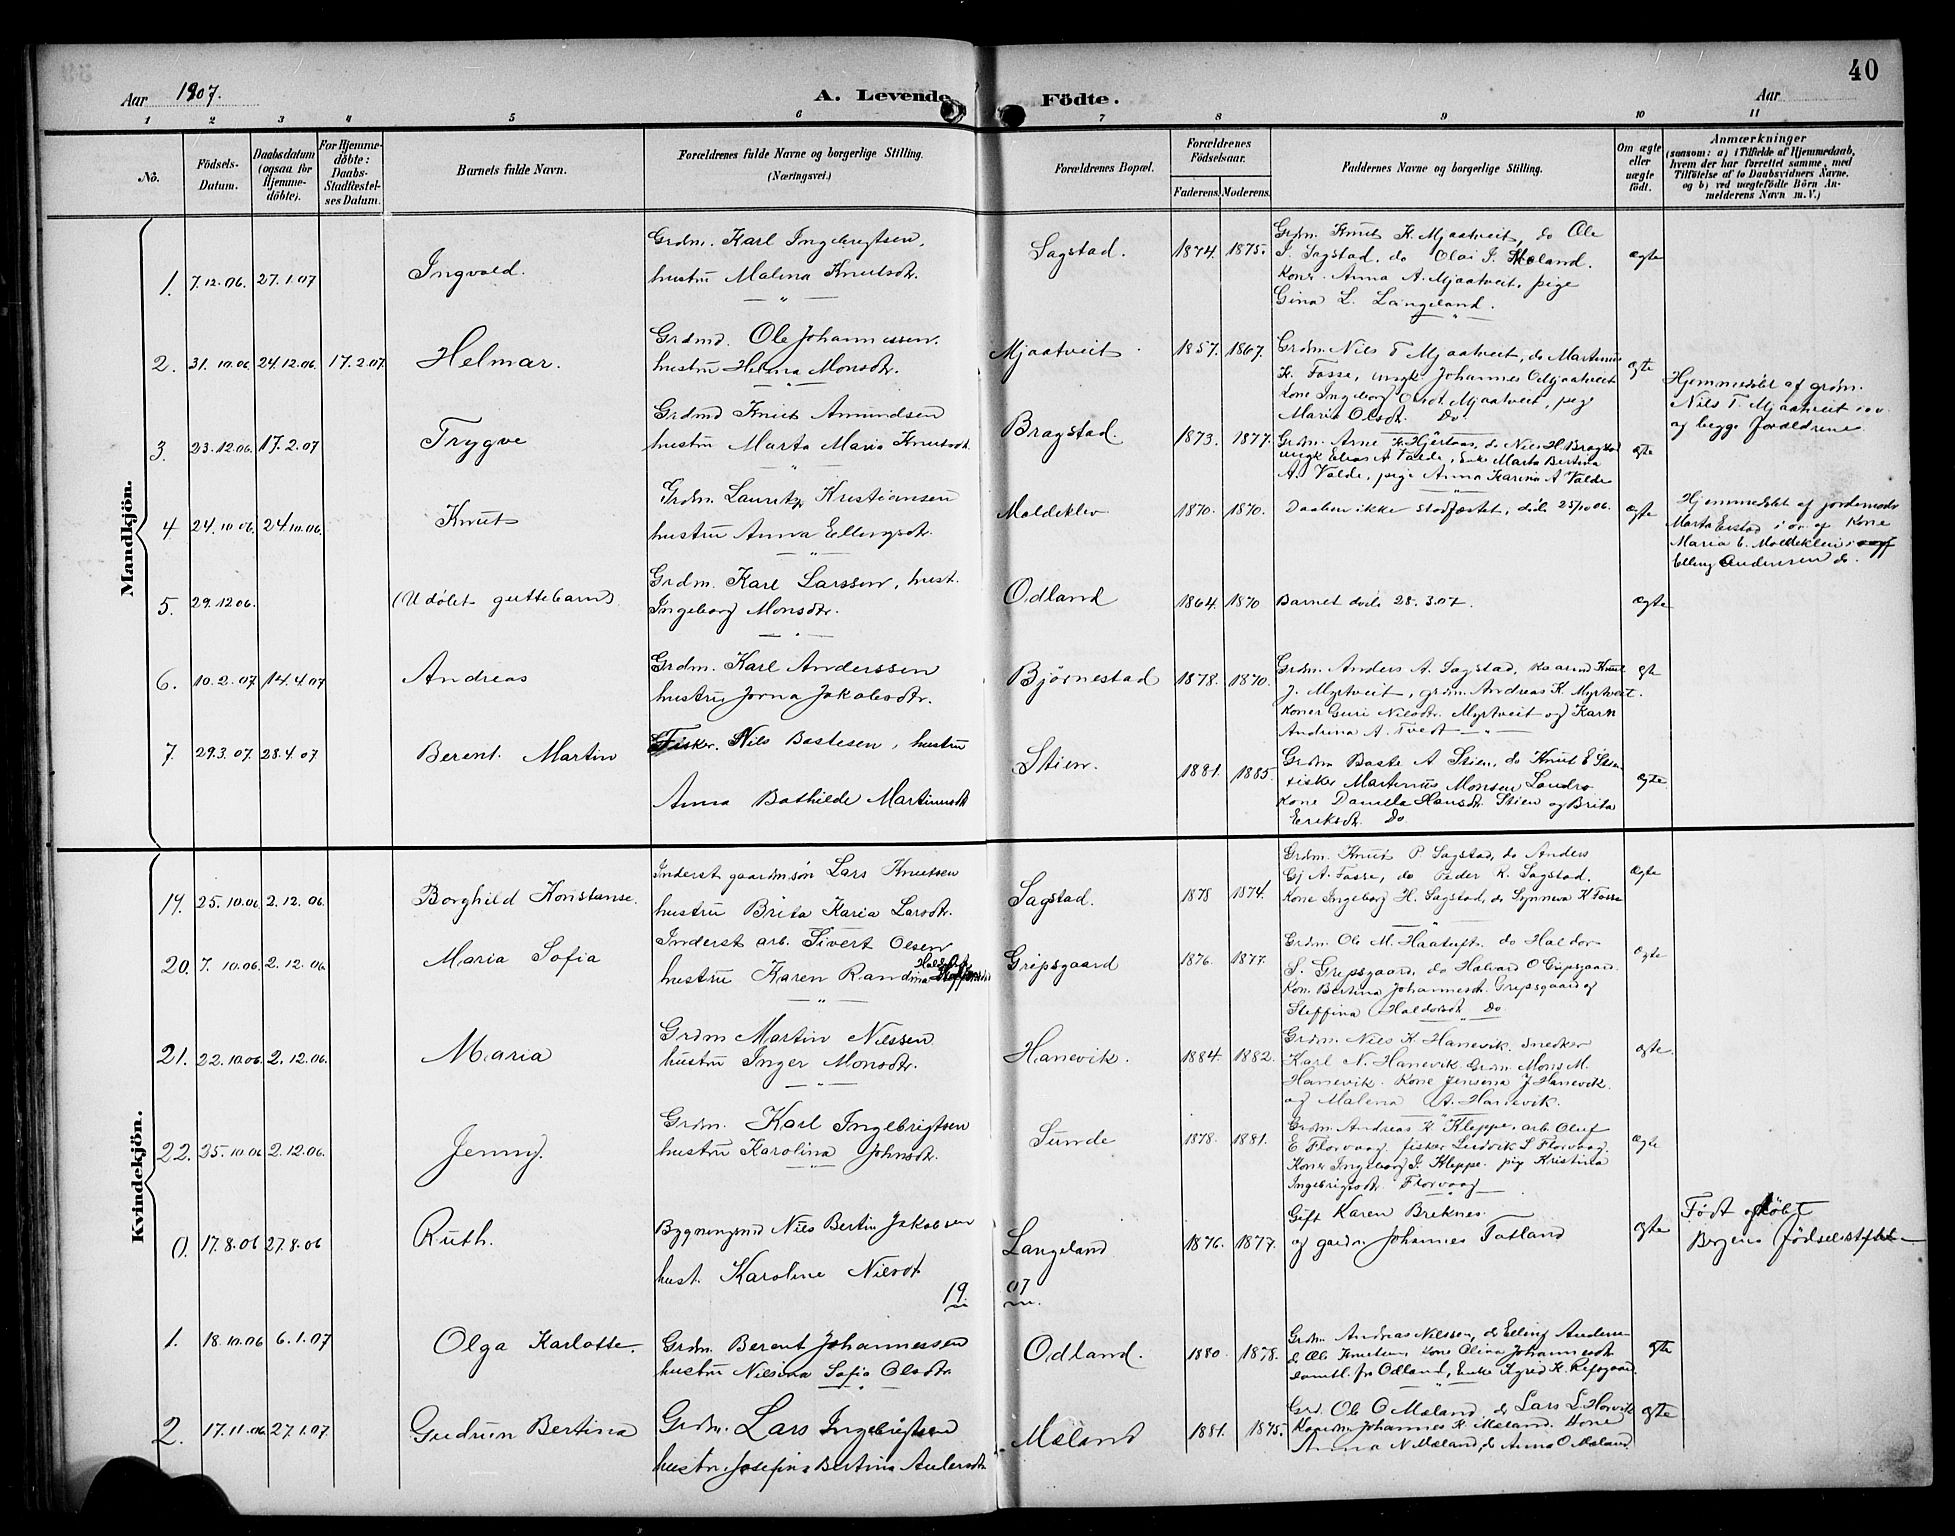 Aar 1907.
A. Levende Födte.
Aar
40
1 2 3 4 5 6 7 8 9 10 11
No.
Födsels-Datum.
Daabsdatum (ogsaa for Hjemmedöbte).
For Hjemmedöbte: Daabs-Stadfæstelses Datum.
Barnets fulde Navn.
Forældrenes fulde Navne og borgerlige Stilling.
(Næringsvei.)
Forældrenes Bopæl.
Forældrenes Födselsaar.
Faderens. Moderens.
Faddernes Navne og borgerlige Stilling.
Om ægte eller uægte födt.
Anmærkninger
(saasom: a) i Tilfælde af Hjemmedaab, hvem der har forrettet samme, med Tilföielse af to Daabsvidners Navne. og b) ved uægtefödte Börn Anmelderens Navn m. V.)
Mandkjön.
1. 7.12.06. 27.1.07 Ingvald.
Grdm. Karl Ingebrigtsen,
hustru Malena Knutsdtr.
Sagstad. 1874. 1875.
Grdm. Knut K. Mjaatveit, do Ole
I. Sagstad, do Olai J. Mæland.
Koner Anna A. Mjaatveit, pige
Gina L. Langeland.
ægte
2. 31.10.06. 24.12.06. 17.2.07. Helmar.
Grdmd. Ole Johannessen,
hustru Helena Monsdtr.
Mjaatveit. 1857. 1867.
Grdm. Nils T. Mjaatveit, do Martinus
K. Fosse, ungk Johannes O Mjaatveit
Kone Ingeborg Olsdt Mjaatveit, pige
Maria Olsdtr. Do
ægte
Hjemmedöbt af grdm.
Nils T. Mjaatveit i ov.
og begge forældrene.
3. 23.12.06. 17.2.07 Trygve
Grdmd Knut Amundsen
hustru Marta Maria Knutsdtr.
Bragstad. 1873. 1877.
Grdm. Arne K. Hjertaas, do Nils H. Bragstad
ungk Elias A Valde, Enke Marta Bertina
A. Valde, pige Anna Karina A Valde
ægte
4 24.10.06. 24.10.06. Knut
Grdm. Lauritz Kristiansen
hustru Anna Ellingsdtr.
Moldeklev 1870. 1870.
Daaben ikke stadfæstet, död 25/10 06.
ægte
Hjemmedöbt af jordemoder
Marta Erstad i ov. af Kone
Maria E. Moldeklev
Elling Andersen do.
5. 29.12.06. (Udöbt guttebarn)
Grdm. Karl Larssen, hust.
Ingeborg Monsdtr.
Odland 1864. 1870
Barnet döde 28.3.07.
ægte
6. 10.2.07. 14.4.07 Andreas
Grdm. Karl Anderssen
hustru Jorna Jakobsdtr.
Björnestad 1878. 1870.
Grdm. Anders A. Sagstad, Kaarmd Knut
J. Myrtveit, grdm. Andreas K. Myrtveit.
Koner Guri Nilsdtr. Myrtveit og Karn
Andrina A. Tvedt
ægte
7. 29.3.07. 28.4.07 Berent Martin
Fisker. Nils Bastesen, hustru
Anna Bathilde Martinusdt
Stien. 1881. 1885.
Grdm Baste A Stien, do Knut E Stien
fisker Martinus Monsen Landro
Kone Daniela Hansdtr. Stien og Brita
Eriksdtr. Do
ægte
Kvindekjön.
19. 25.10.06. 2.12.06. Borghild Konstanse.
Inderst gaardm.sön Lars Knutsen
hustru Brita Karia Larsdtr.
Sagstad. 1878 1874.
Grdm. Knut P. Sagstad, do Anders
Gj A. Fosse, do Peder K. Sagstad.
Kone Ingeborg H. Sagstad, do Synneva K Fosse
ægte
20. 7.10.06. 2.12.06 Maria Sofia
Inderst arb. Sivert Olsen
hustru Karen Randina Haldorsdt
Gripsgaard 1876. 1877.
Grdm. Ole M. Haatuft. do Haldor
S. Gripsgaard, do Halvard O Gripsgaard.
Kon. Bertina Johannesdt. Gripsgaard og
Steffina Haldorsdt Do
ægte
21. 22.10.06. 2.12.06. Maria
Grdm Martin Nilssen
hustru Inger Monsdtr.
Hanevik. 1884. 1882.
Grdm. Nils K. Hanevik. Snedker
Karl N. Hanevik. Grdm. Mons M.
Hanevik. Kone Jensena J. Hanevik.
og Malena A. Hanevik.
ægte.
22. 25.10.06 2.12.06. Jenny.
Grdm. Karl Ingebrigtsen
hustru Karolina Johnsdtr.
Sunde 1878. 1881.
Grdm. Andreas K. Kleppe, arb. Oluf
E Florvaag, fisker Ludvik S Florvaag.
Koner Ingeborg I. Kleppe. pig Kristina
Ingebrigtsdt. Florvaag
ægte
0. 17.8.06 27.8.06 Ruth.
Bygningsmd Nils Bertin Jakobsen
hust. Karoline Nilsdt
Langeland 1876. 1877.
Gift Karen Breknes.
og gaardm. Johannes Tatland
ægte
Födt og döbt
Bergens födselsstiftelse
1907
1. 18.10.06 6.1.07 Olga Karlotte.
Grdm. Berent Johannessen
hustru Nilsina Sofia Olsdtr.
Odland. 1880. 1878.
Grdm Andreas Nilssen, do Elling Andersen
do Ole Knutsen Kone Olina Johannesdt.
samtl. fra Odland, Enke Sigrid K. Refsgaard.
ægte
2. 17.11.06 27.1.07 Gudrun Bertina
Grdm. Lars Ingebrigtsen
hustr. Josefina Bertina Andersdtr
Mæland 1881. 1875.
Grd. Ole O Mæland, do Lars L. Horvik
Johannes K. Mæland. Kone
Anna N. Mæland, do Anna O Mæland.
ægte